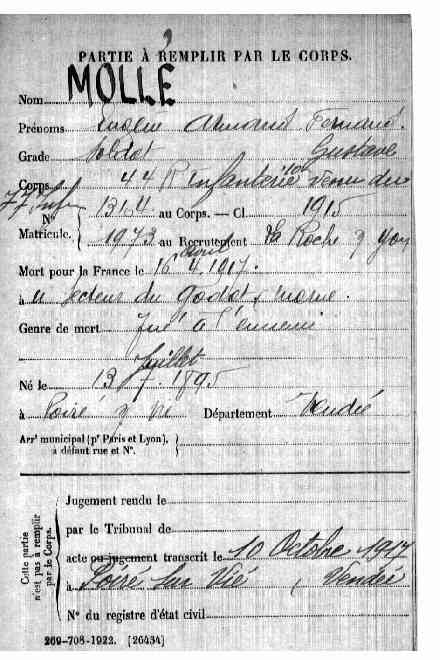 PARTIE À REMPLIR PAR LE CORPS.
MOLLÉ
Nom
Prénoms Eugène Armand Fernand.
Grade Soldat Gustave
Corps 44 R Infanterie venu du
77 Infie
N° 1314 au Corps. — Cl. 1915
Matricule. 1973 au Recrutement La Roche s yon
avril
Mort pour la France le 16 4 1917.
à u secteur du Godat, marne.
Genre de mort Tué à l'ennemi
juillet
Né le 13 7. 1895
à Poiré s vie Département Vendée
Arrt municipal (pr Paris et Lyon),
à défaut rue et N°.
Cette partie n'est pas à remplir par le Corps.
Jugement rendu le
par le Tribunal de
acte ou jugement transcrit le 10 Octobre 1917
à Poiré sur Vie (Vendée
N° du registre d'état civil
269-708-1922. [26434]